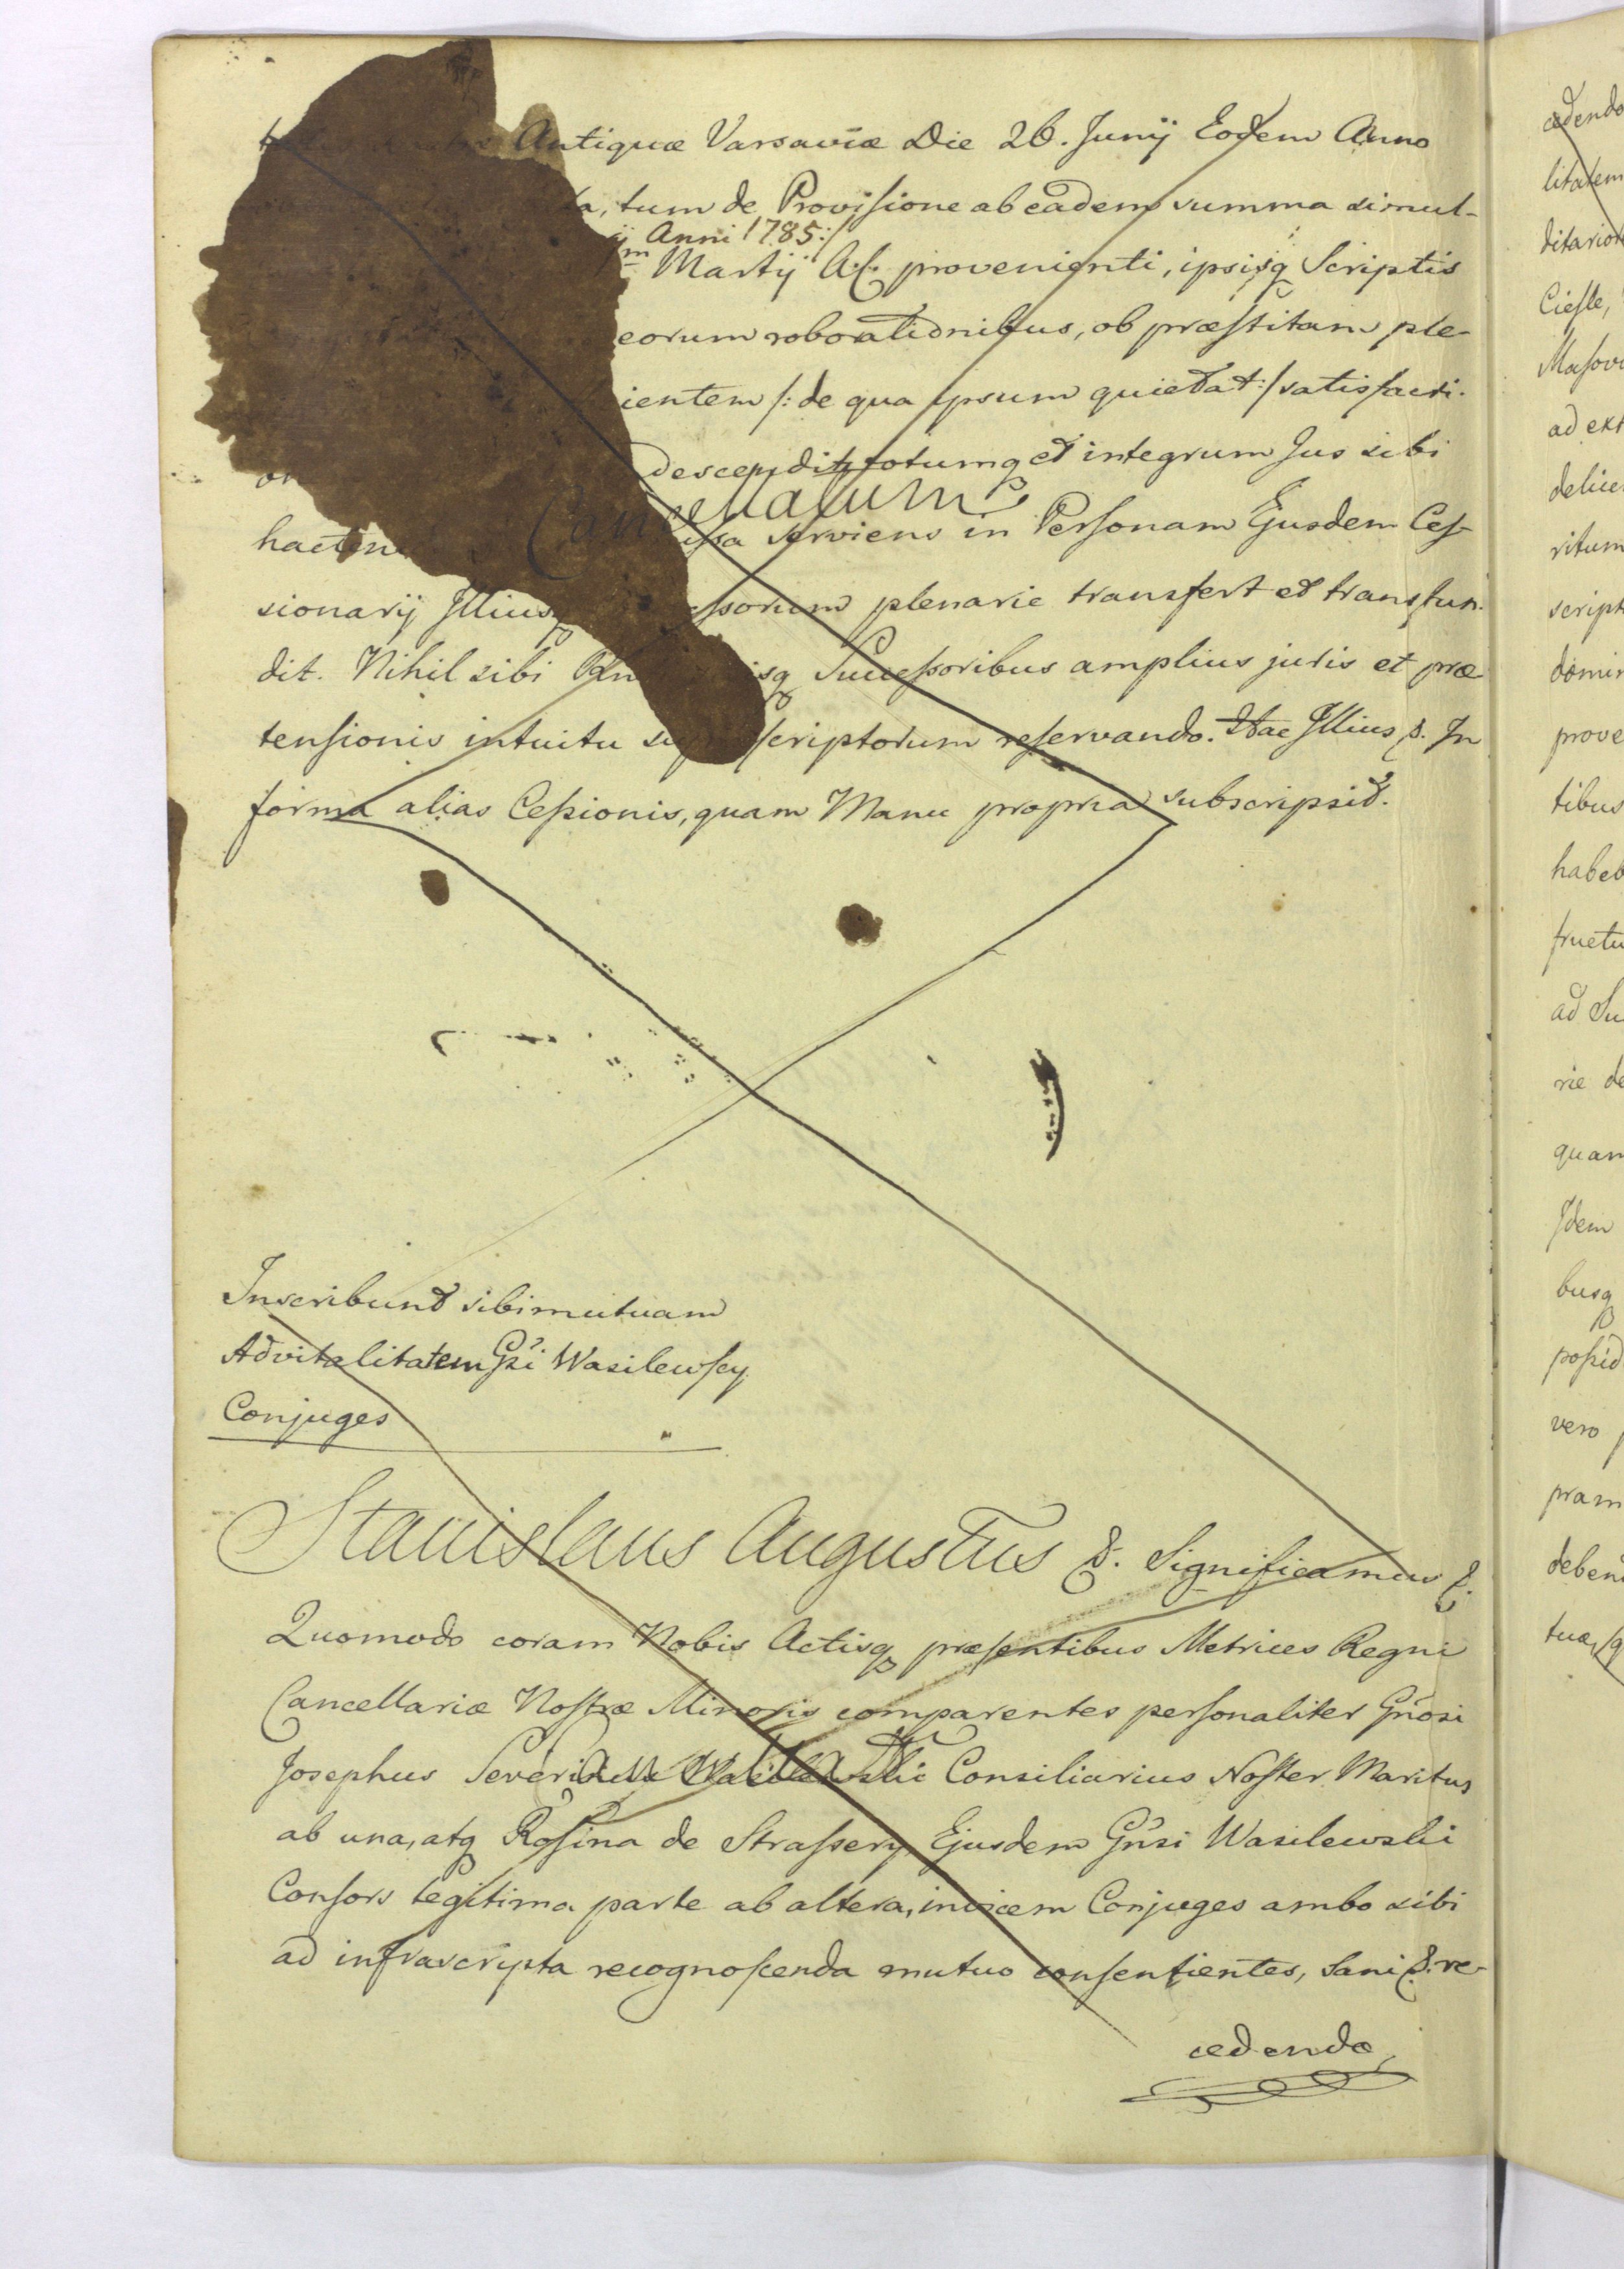 Antiquæ Varsaviæ Die 26. Junij Eodem Anno
tum de Provisione ab eadem summa simul-
Anni 1785:/
Martij A.C. provenienti, ipsisq Scriptis
eorum roborationibus, ob præstitam ple-
ientem /: de qua ipsum quietat :/ satisfacti-
descendit, totumq et integrum Jus sibi
Cancellatum
serviens in Personam Ejusdem Ces-
sionarij Illiusq ssorum plenarie transfert et transfun-
dit. Nihil sibi isq Successoribus amplius juris et præ-
tensionis intuitu suprascriptorum reservando. Hac Illius &. In
forma alias Cessionis, quam Manu propria subscripsit.
Inscribunt sibi mutuam
Advitalitatem Gsi Wasilewscy
Conjuges
Stanislaus Augustus &. Significamus &.
Quomodo coram Nobis Actisq præsentibus Metrices Regni
Cancellariæ Nostræ Minoris comparentes personaliter Gnosi
Josephus Severinus Wasilewski Consiliarius Noster Maritus
ab una, atq Rosina de Strassery Ejusdem Gnsi Wasilewski
Consors legitima parte ab altera, invicem Conjuges ambo sibi
ad infrascripta recognoscenda mutuo consentientes, sani &. re-
cedendo
cedendo
litatem
ditarior
Ciesle,
Masovi
ad ext
delice
ritum
script
domin
prove
tibus
habeb
fructu
ad Su
rie de
quam
Idem
busq
possid
vero
pram
deben
tuæ,